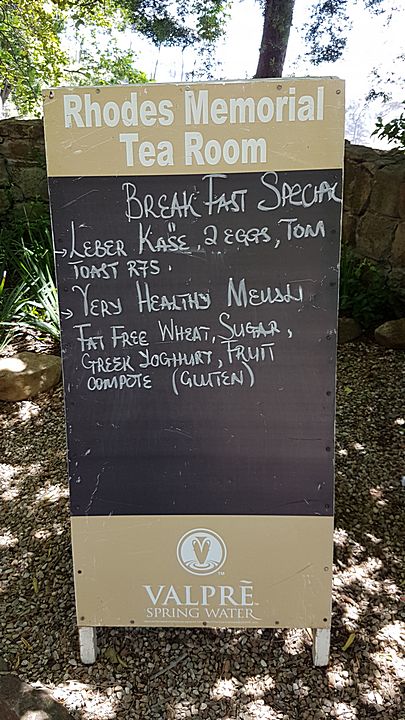 Rhodes Memorial
Tea Room
BREAKFAST SPECIAL
→ LEBER KÄSE, 2 EGGS, TOM
TOAST R75.
→ VERY HEALTHY MEUSLI
FAT FREE WHEAT, SUGAR,
GREEK YOGHURT, FRUIT
COMPOTE (GLUTEN)
VALPRĒ™
SPRING WATER